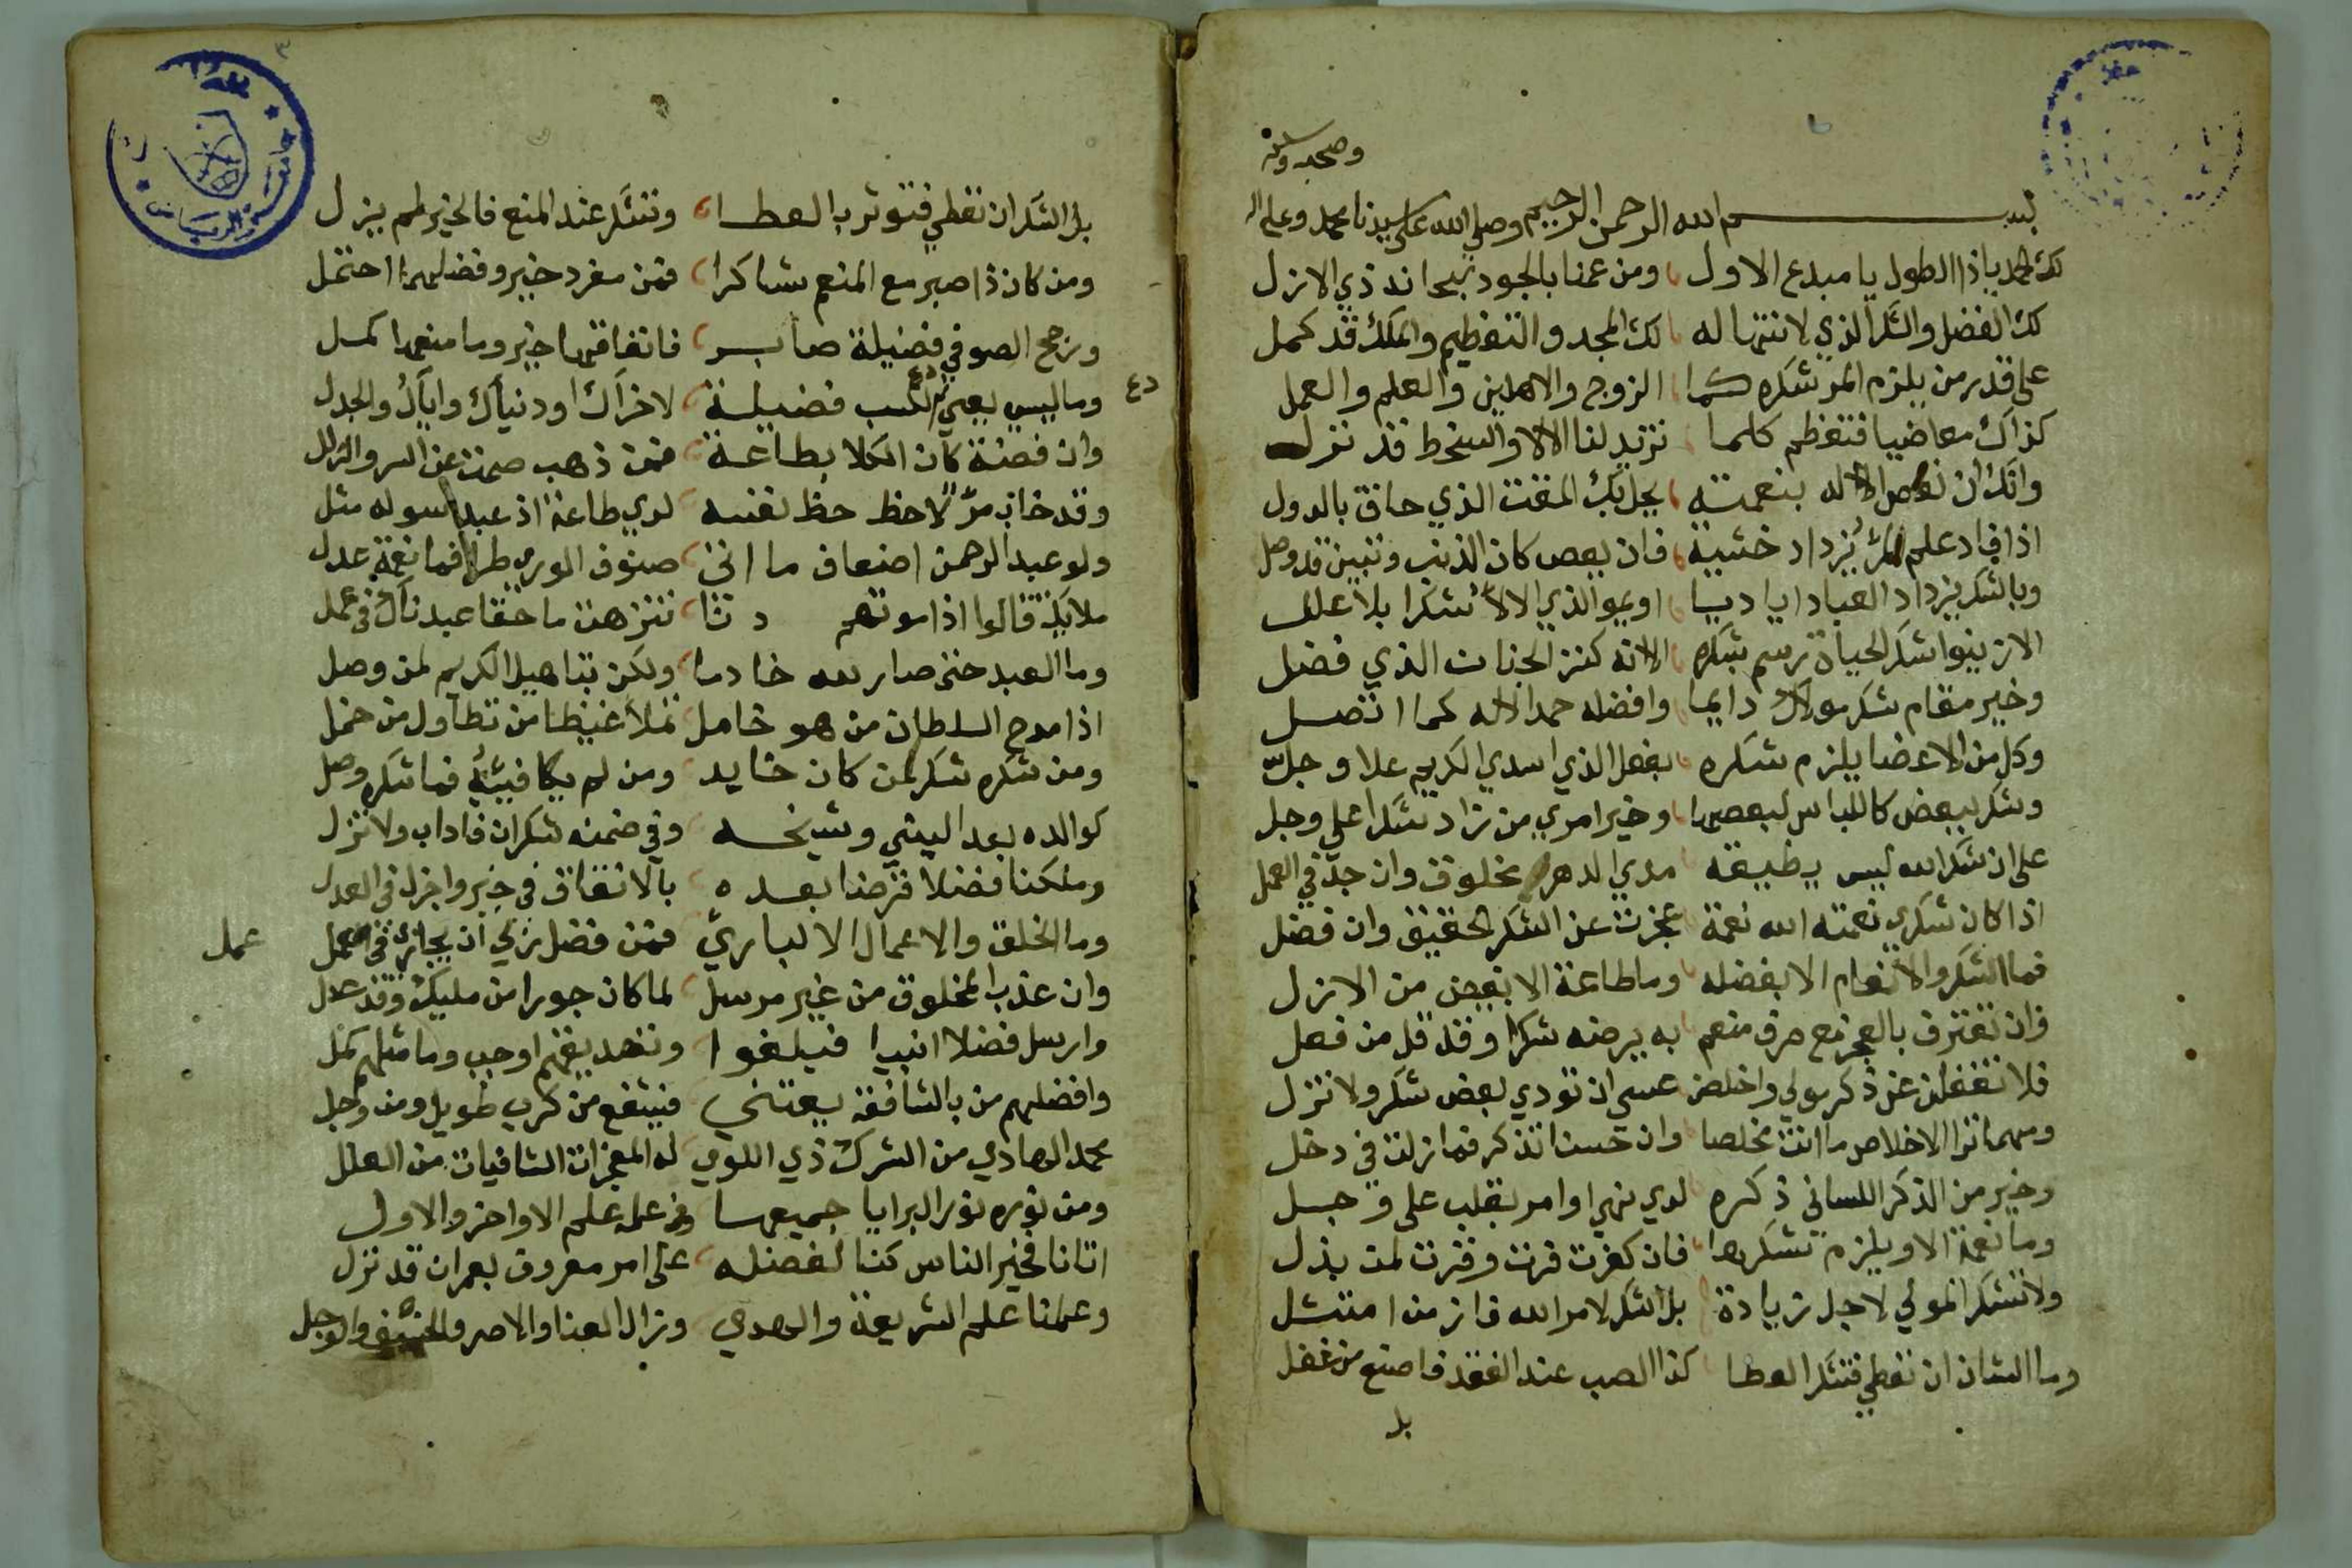 وصحبه وسلم
بسم الله الرحمن الرحيم وصلى الله على سيدنا محمد وعلى اله
لك الحمد ياذا الطول يا مبدع الاول ومن عمنا بالجود سبحانه ذي الازل
لك الفضل والشكر الذي لا انتها له لك المجد والتعظيم والملك قد كمل
على قدر من يلزم المرء شكره كما الزوج والاهلين والعلم والعمل
كذاك معاضيا فتعظم كلما تزيد لنا الالا والسخط قد نزل
وانك ان تعص الاله بنعمته يحل بك المقت الذي حاق بالدول
اذا فاد علم المرء يزداد خشية فان يعص كان الذنب وتبين قد وصل
وبالشكر يزداد العباد اياديا
وخير مقام شكر مولاك دايما وافضله حمد الاله كما اتصل
وكل من الاعضا يلزم شكره بفعل الذي اسدي الكريم علا وجل
وشكر لبعض كاللباس لبعضها وخير امري من زاد شكرا على وجل
على ان شكر الله ليس يطيقه مدي الدهر مخلوق وان جد في العمل
اذا كان شكري نعمته الله نعمة عجزت عن الشكر الحقيق وان فضل
فما الشكر والانعام الا بفضله وما طاعة الا بفيض من الازل
فان تعترف بالعجز مع صرف منعم به يرضه شكرا وقد قل من فعل
فلا تغفلن عن ذكر مولي واخلصن عسى ان تودي بعض شكر ولا تزل
ومهما ترا الاخلاص ما انت مخلصا وان خسنا تذكر فما زلت في دخل
وخير من الذكر اللساني ذكره لدي نهي او امر بقلب على وجل
وما نعمة الا ويلزم شكرها فان كفرت فرت وقرت لمن بذل
ولا تشكر المولي لاجل زيادة بل الشكر لامر الله فاز من امتثل
وما الشان ان تعطي فتشكر العطا كذا الصب عند الفقد فاصنع من غفل
بل
بل الشكر ان تعطي فتوثر بالعطا وتشكر عند المنع فالخير لم يزل
ومن كان ذا صبر مع المنع شاكرا فمن مفرد خير وفضلهما احتمل
ورجح الصوفي فضيلة صابر فاتفاقهما خير وما منعهما كمل
وما ليس يعني لكسب فضيلة لاخراك او دنياك واياك والجدل
دع
وان فضة كان الكلا بطاعة فمن ذهب صمت عن السر والزلل
وقد خاب مرء لاحظ حظ نفسه لدي طاعة اذ عبد سوله مثل
ولو عبد الرحمن اضعاف ما اتى صنوف الوري طرا فما نعمة عدل
ملايكة قالوا اذا موتهم دنا تنزهت ما حقا عبدناك في عمل
وما العبد حتى صار لله خادما ولكن بتاهيل الكريم لمن وصل
اذا مدح السلطان من هو خامل تملا غيظا من تطاول من خمل
ومن شكره شكر لمن كان خايد ومن لم يكافيه فما شكره وصل
كوالده بعد النبي وشيخه وفي ضمنه شكران فاداب ولا تزل
وملكنا فضلا قرضا بعده بالانفاق في خير واجزل في العدل
وما الخلق والاعمال الا لباري فمن فضل زكي ان يجازي في عمل
عمل
وان عذب المخلوق من غير مرسل لما كان جورا من مليك وقد عدل
وارسل فضلا انبيا فبلغوا وتصديقهم اوجب وما مثلهم كمل
وافضلهم من بالشافعة يعتني فيشفع من كرب طويل ومن وجل
محمد الهادي من الشرك ذي اللوي له المعجزات الشافيات من العلل
ومن نوره نور البرايا جميعها ومن علمه علم الاواخر والاول
اتانا فخير الناس كنا لفضله على امر معروف بعمران قد نزل
وعلمنا علم الشريعة والهدي وزال العنا والاصر والخسف والوجل